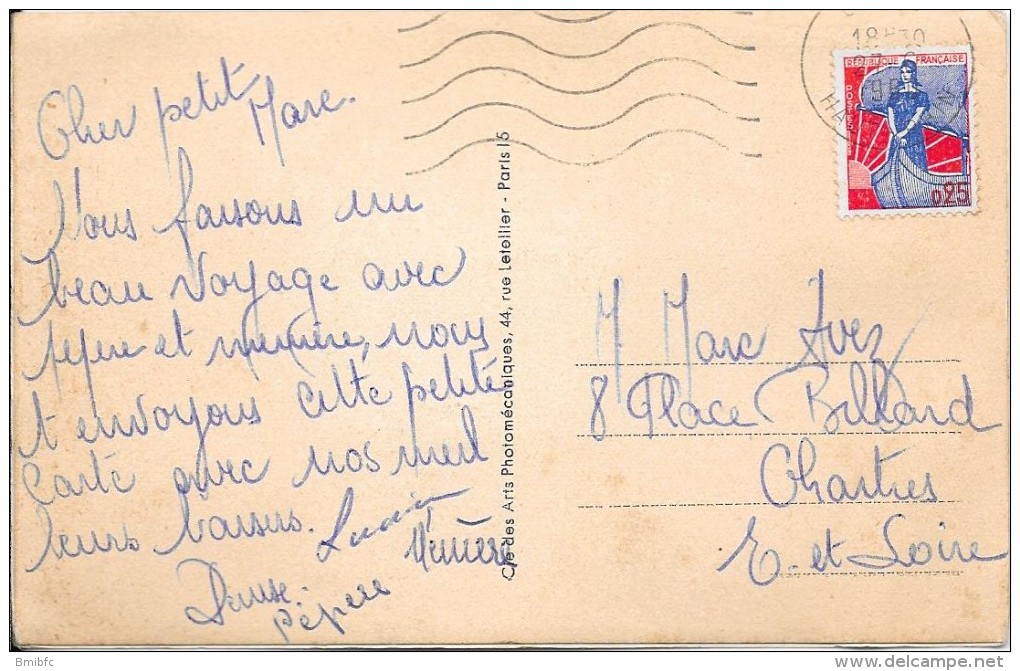 Cher petit Marc.
Nous faisons un
beau voyage avec
pépère et mémère, nous
t envoyons cette petite
carte avec nos meil
leurs baisers.
Lucien
Mémère
Denise.
Pépère
Cie des Arts Photomécaniques, 44, rue Letellier - Paris 15
18H30
REPUBLIQUE FRANÇAISE
POSTES
0,25
M Marc Ivez
8 Place Billard
Chartres
E. et Loire
Bmibfc
delcampe.net